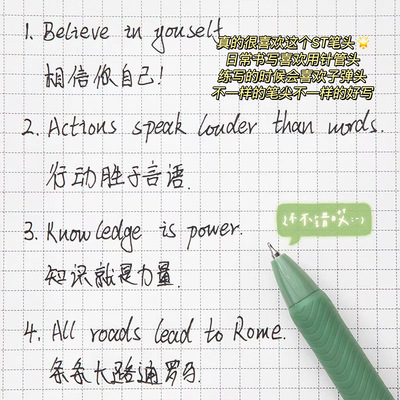 1. Believe in youself
相信你自己!
真的很喜欢这个ST笔头🌟
日常书写喜欢用针管头
练写的时候会喜欢子弹头
不一样的笔尖不一样的好写
2. Actions speak louder than words.
行动胜于言语.
3. Knowledge is power.
知识就是力量.
不错哎:-)
4. All roads lead to Rome.
条条大路通罗马.